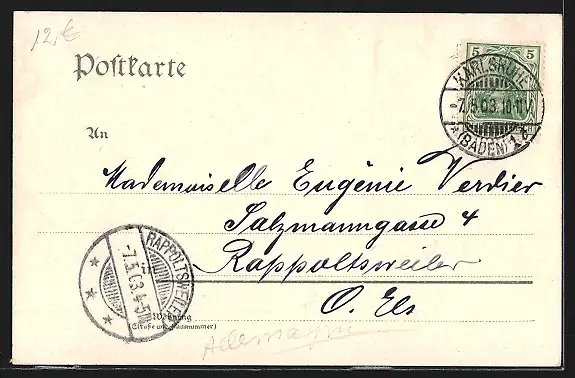 12,€
Postkarte
5 5
KARLSRUHE
-7.5.03.10-11V.
*(BADEN) 1.*
An
Mademoiselle Eugénie Verdier
Salzmanngasse 4
Rappoltsweiler
O. Els
RAPPOLTSWEILER
-7.5.03.4-5N
Wohnung
(Straße und Hausnummer)
Allemagne